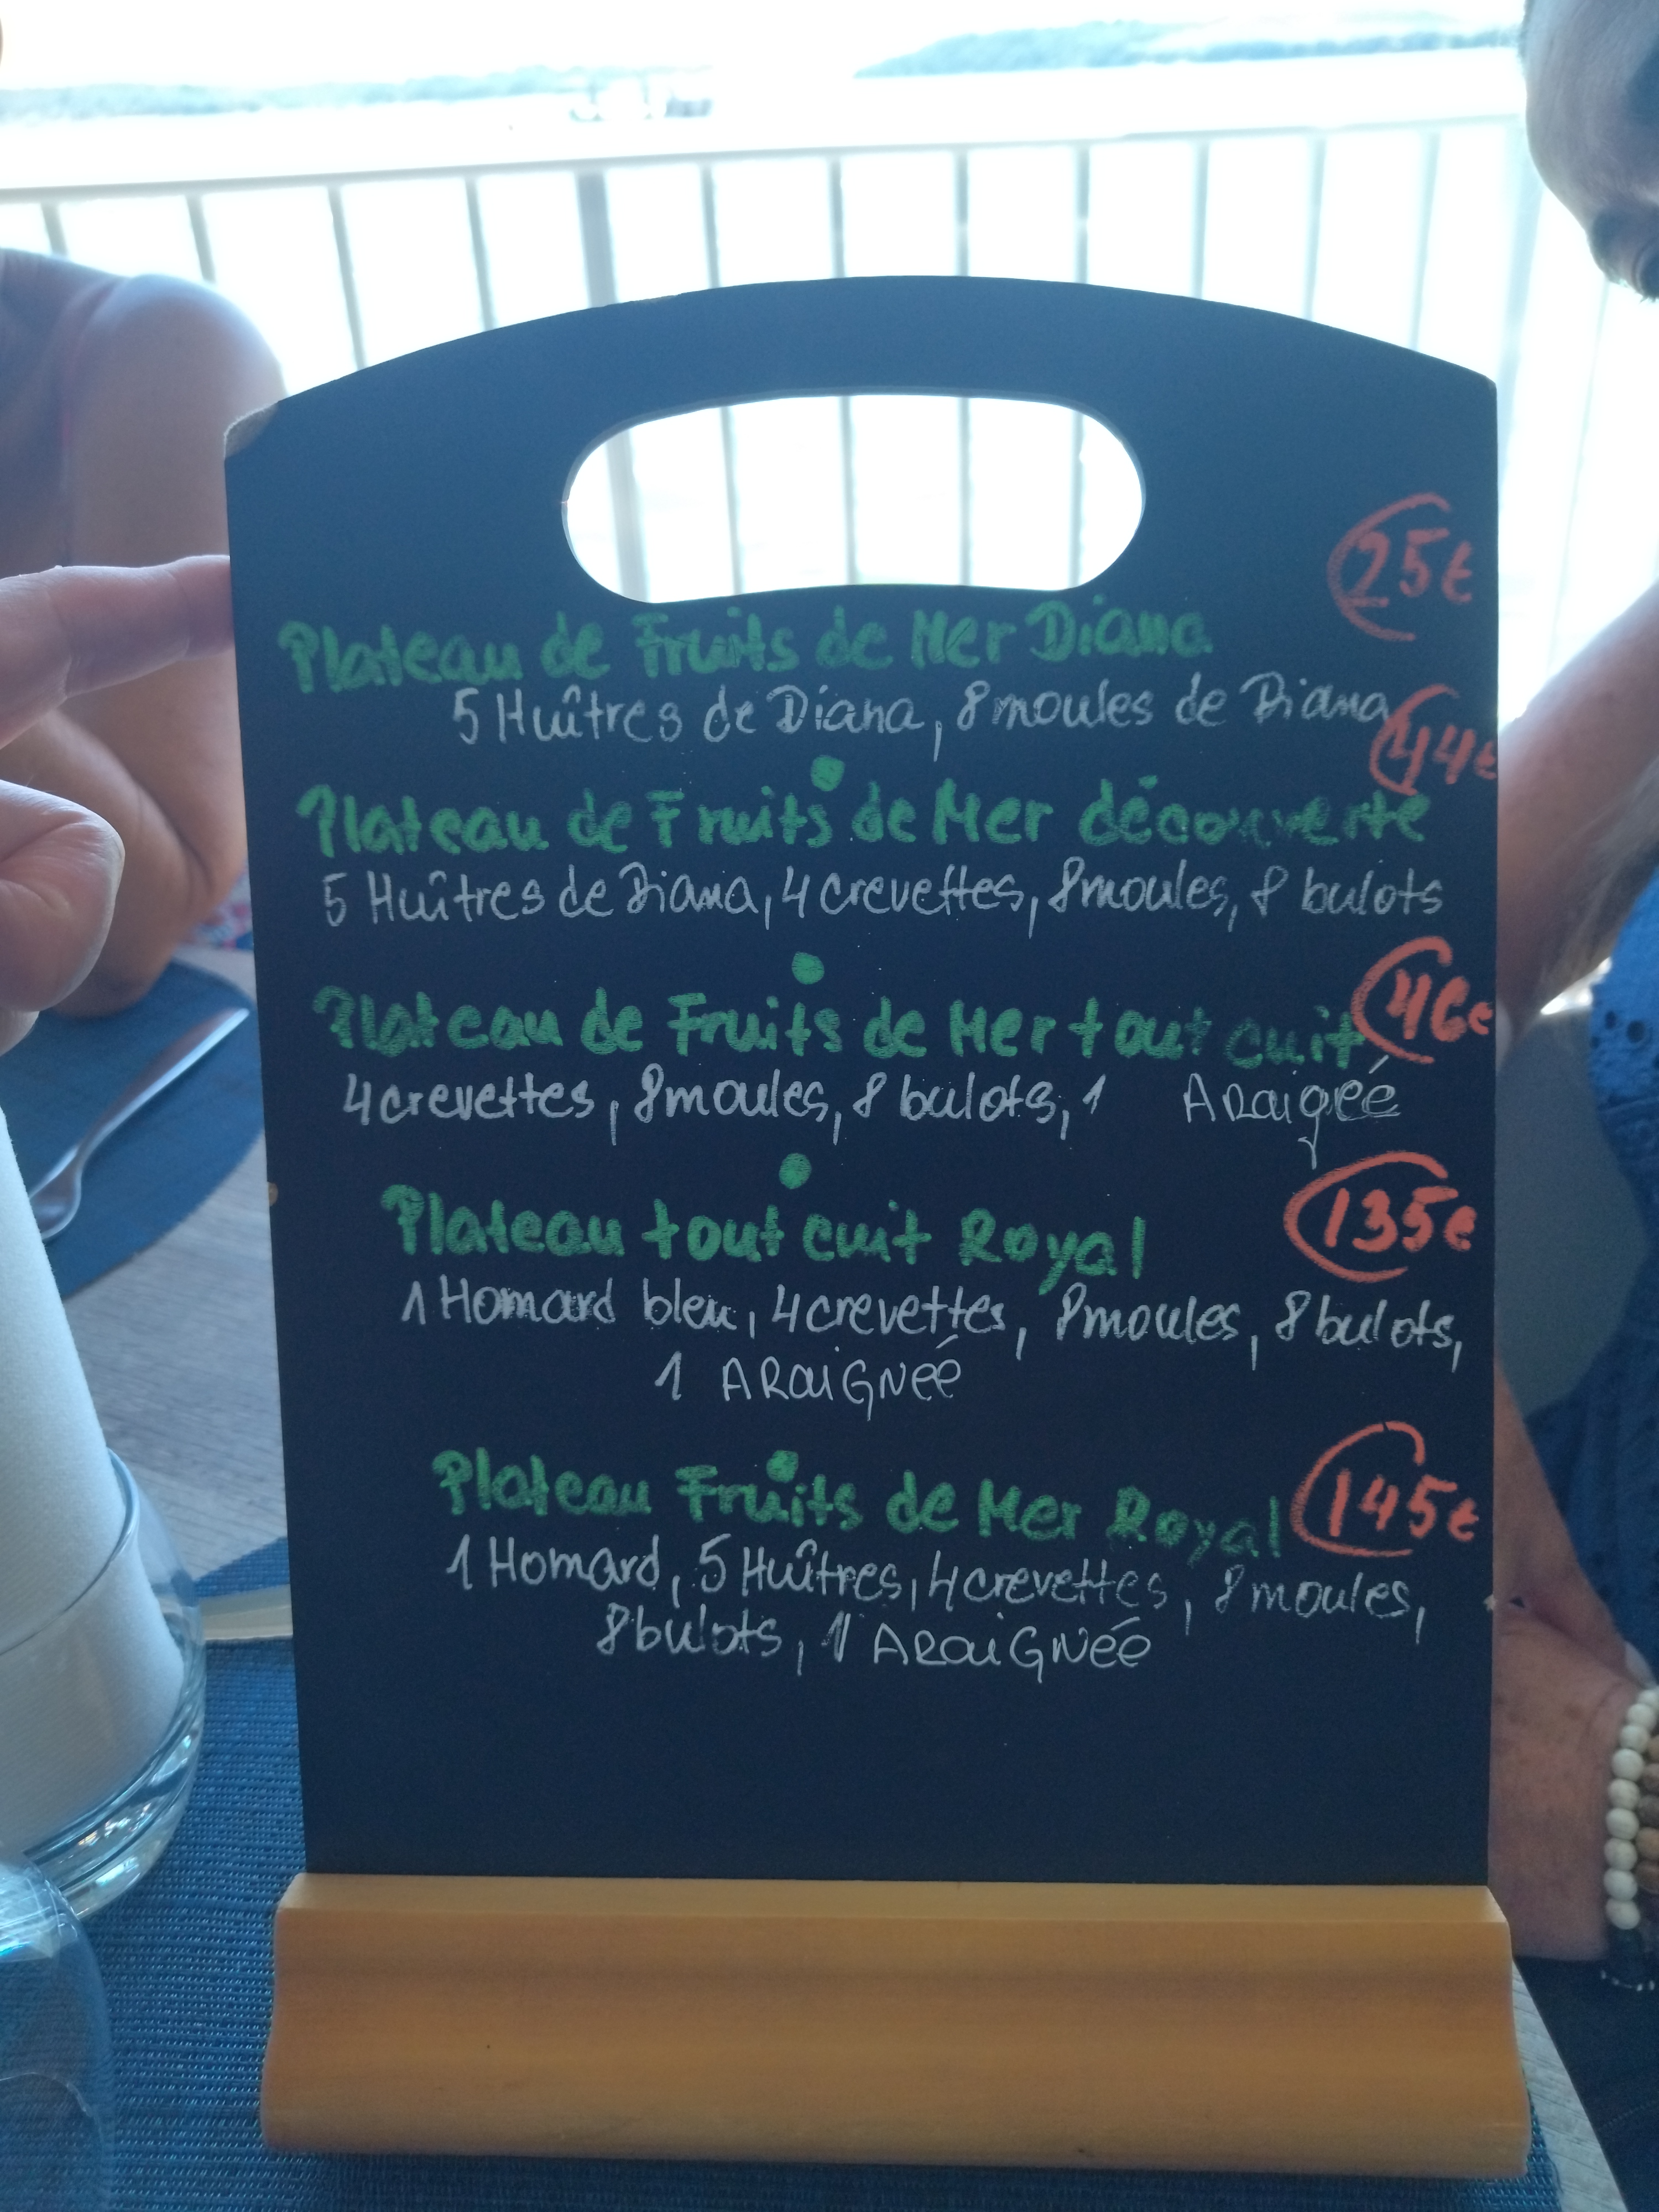 25€
Plateau de Fruits de Mer Diana
5 Huîtres de Diana, 8 moules de Diana
44€
Plateau de Fruits de Mer découverte
5 Huîtres de Diana, 4 crevettes, 8 moules, 8 bulots
Plateau de Fruits de Mer tout cuit 46€
4 crevettes, 8 moules, 8 bulots, 1 Araignéé
Plateau tout cuit Royal 135€
1 Homard bleu, 4 crevettes, 8 moules, 8 bulots,
1 ARaiGNéé
Plateau Fruits de Mer Royal 145€
1 Homard, 5 Huîtres, 4 crevettes, 8 moules,
8 bulots, 1 ARaiGNéé